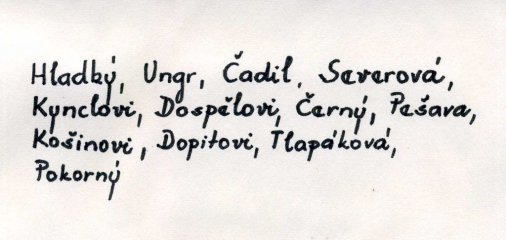 Hladký, Ungr, Čadil, Severová,
Kynclovi, Dospělovi, Černý, Pešava,
Košinovi, Dopitovi, Tlapáková,
Pokorný